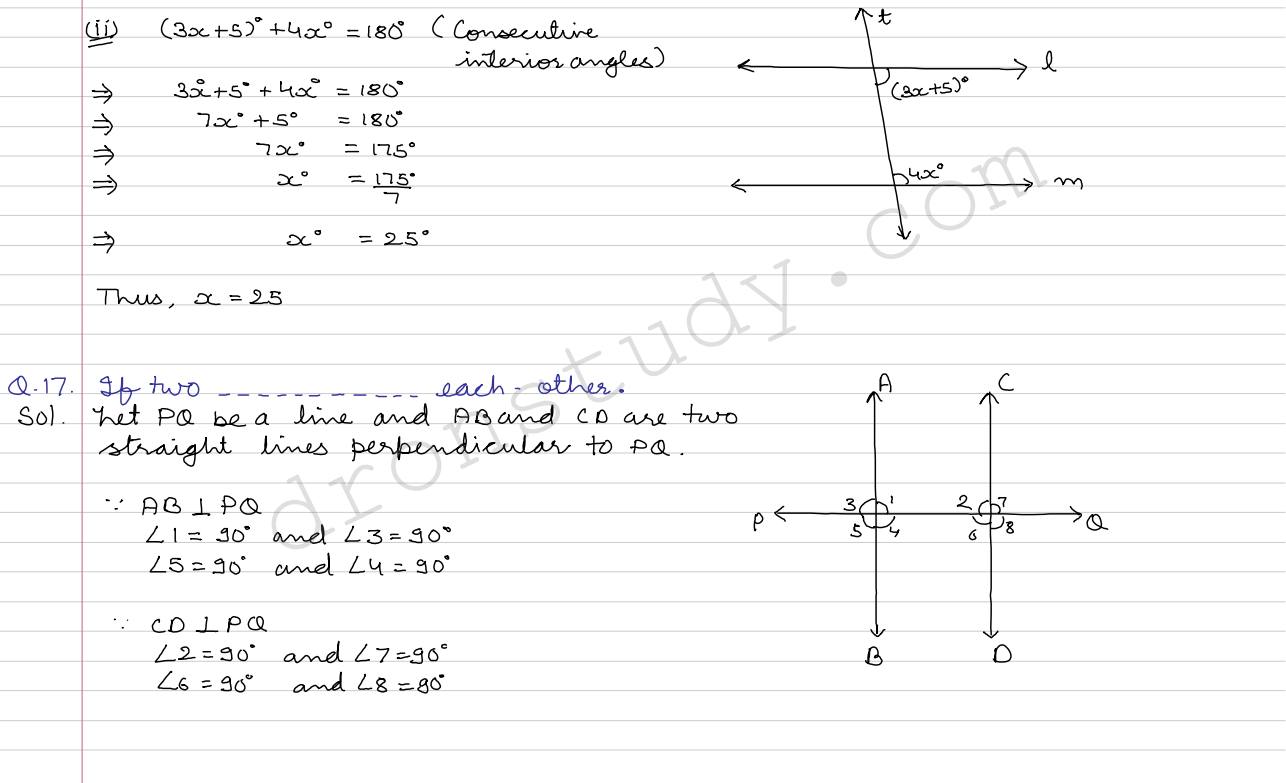 (ii) (3x+5)° + 4x° = 180° (Consecutive
interior angles)
⇒ 3x°+5° + 4x° = 180°
⇒ 7x° + 5° = 180°
⇒ 7x° = 175°
⇒ x° = 175°/7
⇒ x° = 25°
Thus, x = 25
t
l
(3x+5)°
4x°
m
Q.17. If two ____________ each-other.
Sol. Let PQ be a line and AB and CD are two
straight lines perpendicular to PQ.
∵ AB ⊥ PQ
∠1 = 90° and ∠3 = 90°
∠5 = 90° and ∠4 = 90°
∵ CD ⊥ PQ
∠2 = 90° and ∠7 = 90°
∠6 = 90° and ∠8 = 90°
A C
3 1 2 7
P Q
5 4 6 8
B D
dronstudy.com